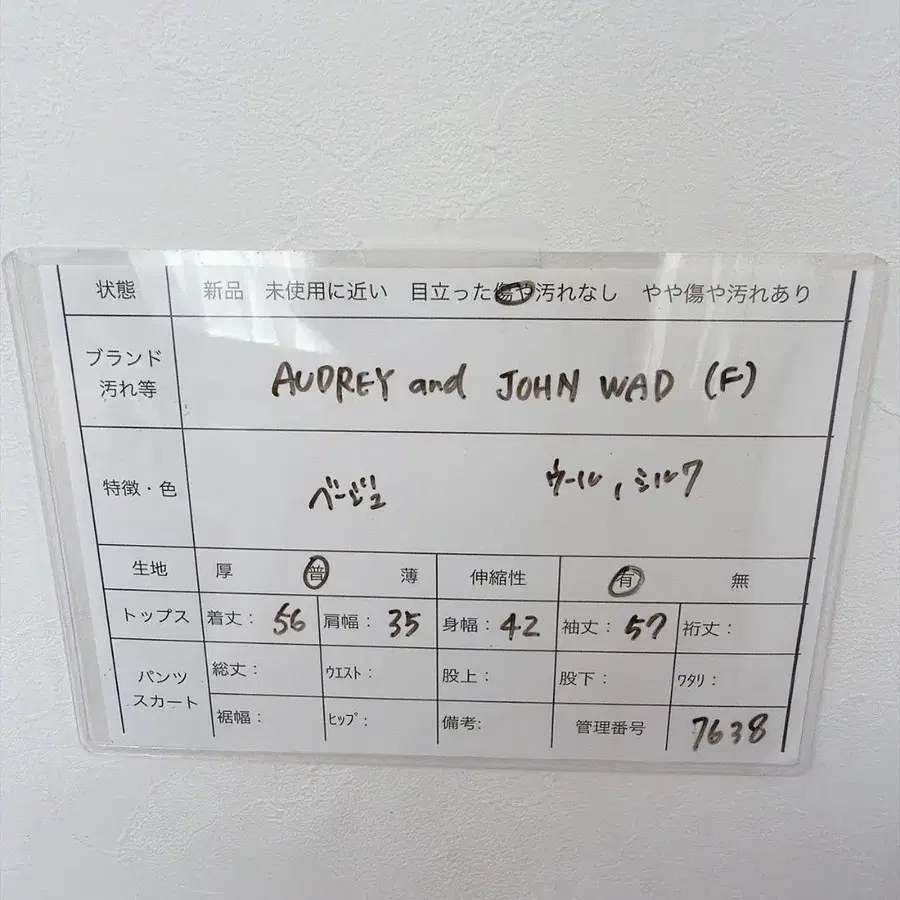 状態 新品 未使用に近い 目立った傷や汚れなし やや傷や汚れあり
ブランド
汚れ等
AUDREY and JOHN WAD (F)
特徴・色 ベージュ ウール, シルク
生地 厚 普 薄 伸縮性 有 無
トップス 着丈: 56 肩幅: 35 身幅: 42 袖丈: 57 裄丈:
パンツ
スカート
総丈: ウエスト: 股上: 股下: ワタリ:
裾幅: ヒップ: 備考: 管理番号 7638